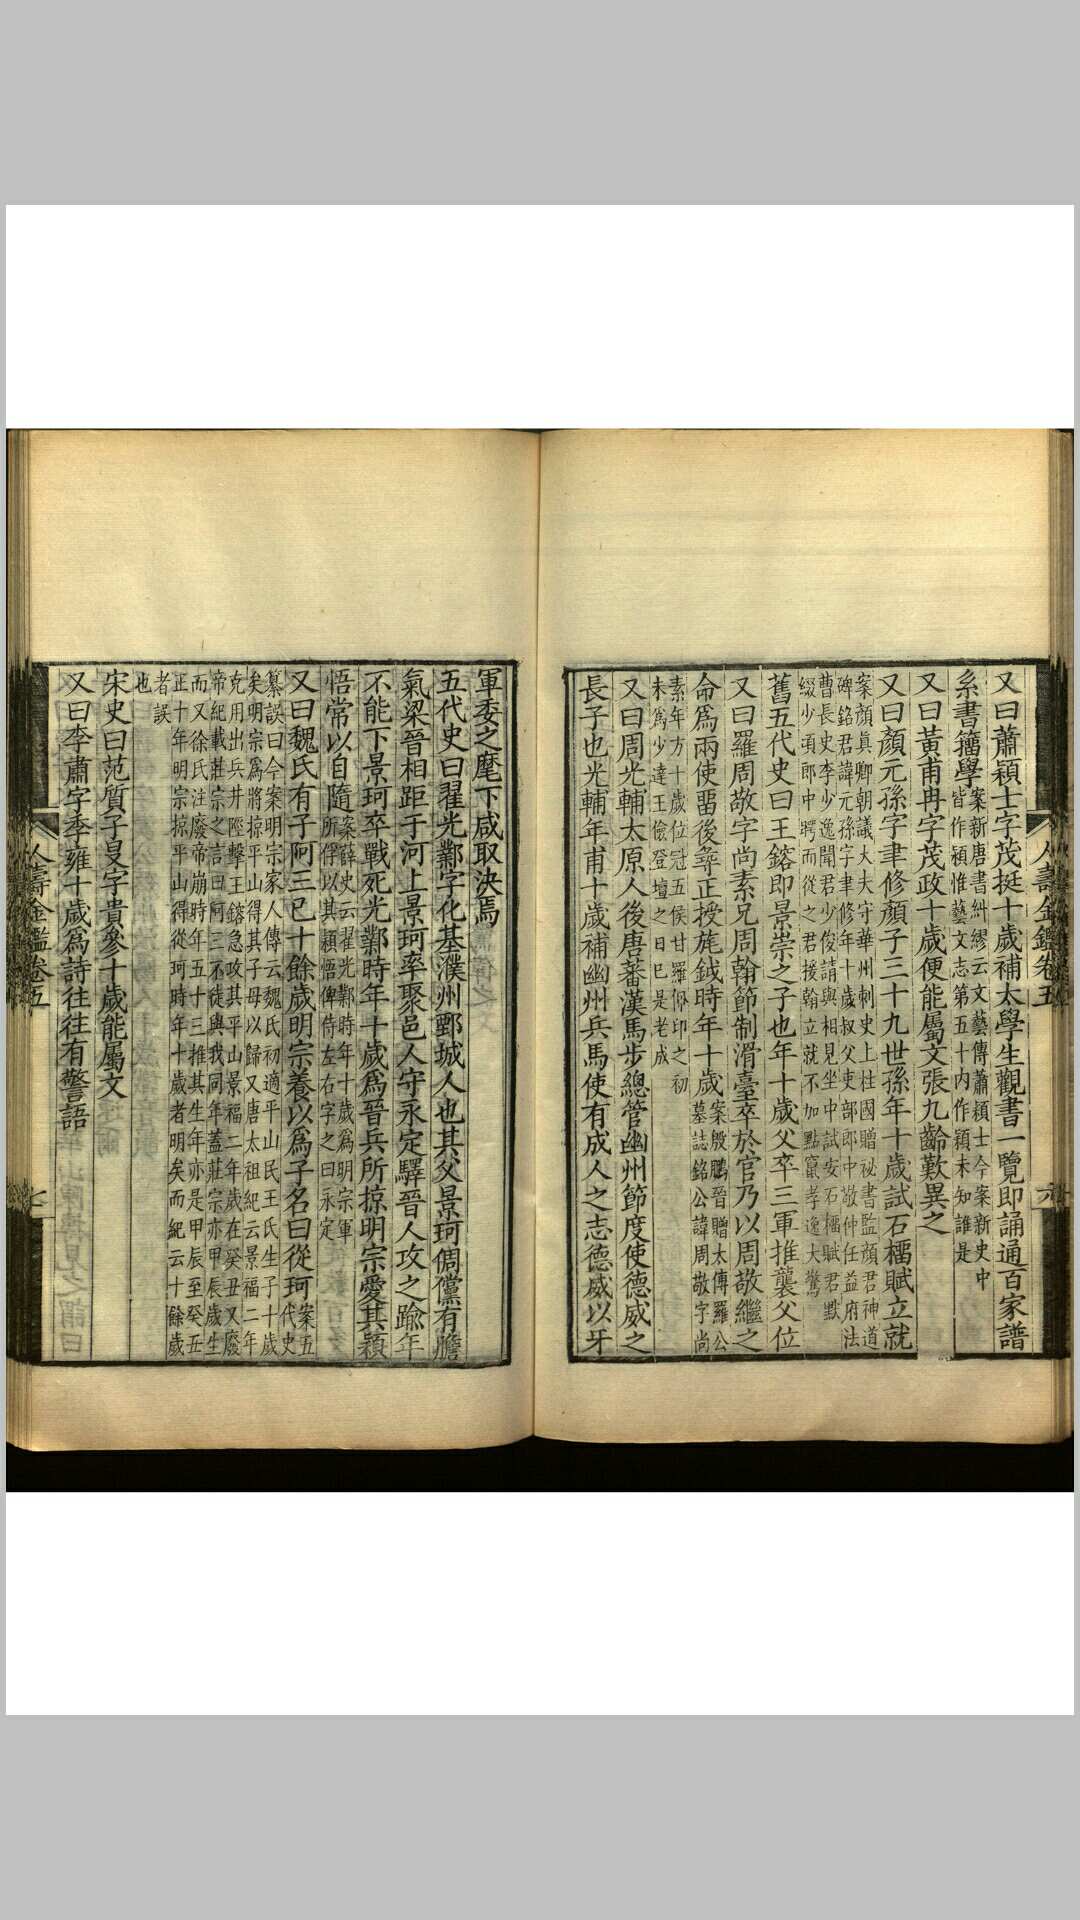 人壽金鑑卷五
又曰蕭穎士字茂挺十歲補太學生觀書一覽即誦通百家譜
系書籀學案新唐書糾繆云文藝傳蕭穎士今案新史中
皆作穎惟藝文志第五十內作頴未知誰是
又曰黃甫冉字茂政十歲便能屬文張九齡歎異之
又曰顏元孫字聿修顏子三十九世孫年十歲試石橊賦立就
案顏眞卿朝議大夫守華州刺史上柱國贈祕書監顏君神道
碑銘君諱元孫字聿修年十歲叔父吏部郎中敬仲任益府法
曹長史李少逸聞君少俊請與相見坐中試安石橊賦君默
綴少頃郎中愕而從之君援翰立就不加點竄孝逸大驚
舊五代史曰王鎔即景崇之子也年十歲父卒三軍推襲父位
又曰羅周敬字尚素兄周翰節制滑臺卒於官乃以周敬繼之
命爲兩使畱後尋正授旄鉞時年十歲案殷鵬晉贈太傳羅公
墓誌銘公諱周敬字尚
素年方十歲位冠五侯甘羅佩印之初
未爲少達王儉登壇之日已是老成
又曰周光輔太原人後唐蕃漢馬步總管幽州節度使德威之
長子也光輔年甫十歲補幽州兵馬使有成人之志德威以牙
軍委之麾下咸取決焉
五代史曰翟光鄴字化基濮州鄄城人也其父景珂倜儻有膽
氣梁晉相距于河上景珂率聚邑人守永定驛晉人攻之踰年
不能下景珂卒戰死光鄴時年十歲爲晉兵所掠明宗愛其穎
悟常以自隨案薛史云翟光鄴時年十歲爲明宗軍
所俘以其穎悟俾侍左右字之曰永定
又曰魏氏有子阿三已十餘歲明宗養以爲子名曰從珂案五
代史
纂誤曰今案明宗家人傳云魏氏初適平山民王氏生子十歲
矣明宗爲將掠平山得其子母以歸又唐太祖紀云景福二年
克用出兵井陘擊王鎔急攻其平山景福二年歲在癸丑又廢
帝紀載莊宗之言曰阿三不徒與我同年蓋莊宗亦甲辰歲生
而又徐氏注廢帝崩時年五十三推其生年亦是甲辰至癸丑
正十年明宗掠平山得從珂時年十歲者明矣而紀云十餘歲
者誤
也
宋史曰范質子旻字貴參十歲能屬文
又曰李肅字季雍十歲爲詩往往有警語
人壽金鑑卷五
七